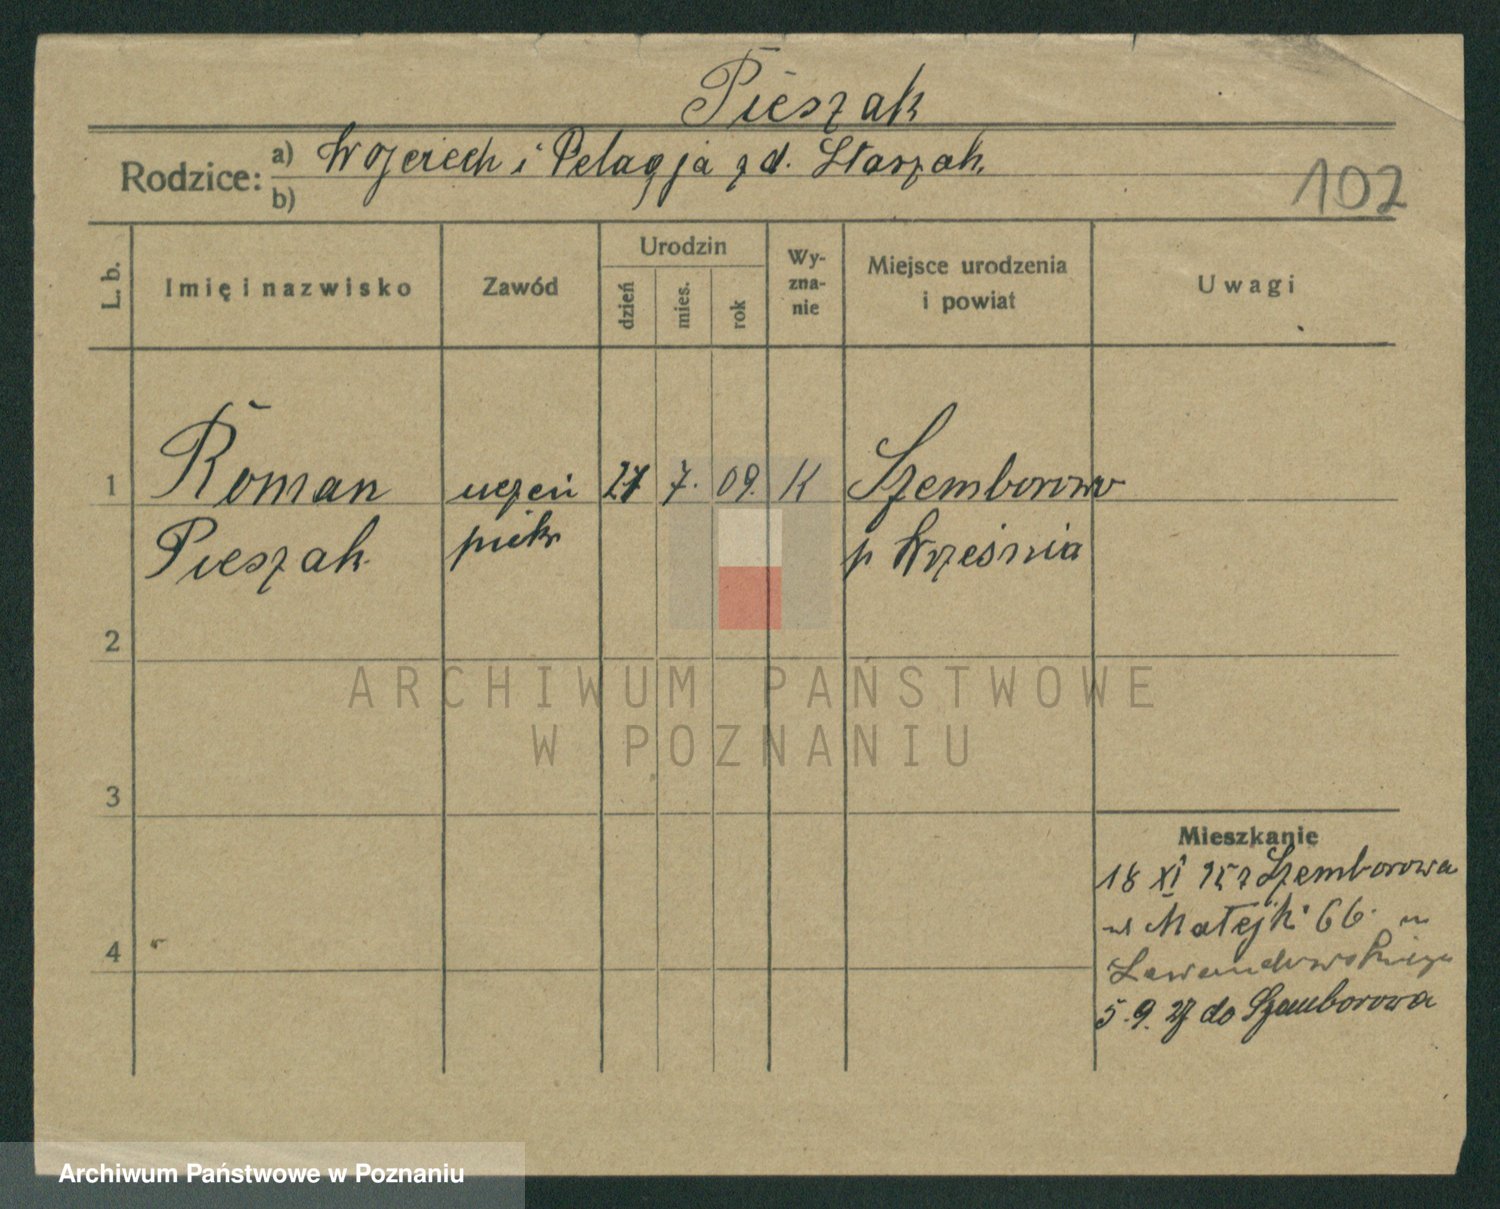 Pieszak
Rodzice: a) Wojciech i Pelagja z d. Staszak.
b)
102
L. b. Imię i nazwisko Zawód Urodzin dzień mies. rok Wyznanie Miejsce urodzenia i powiat Uwagi
1 Roman uczeń 27 7. 09. K Szemborowo
Pieszak piek. p Września
2
ARCHIWUM PAŃSTWOWE
W POZNANIU
3
Mieszkanie
18 XI 25 z Szemborowa
Matejki 66
4
5.9.27 do Szemborowa
Archiwum Państwowe w Poznaniu